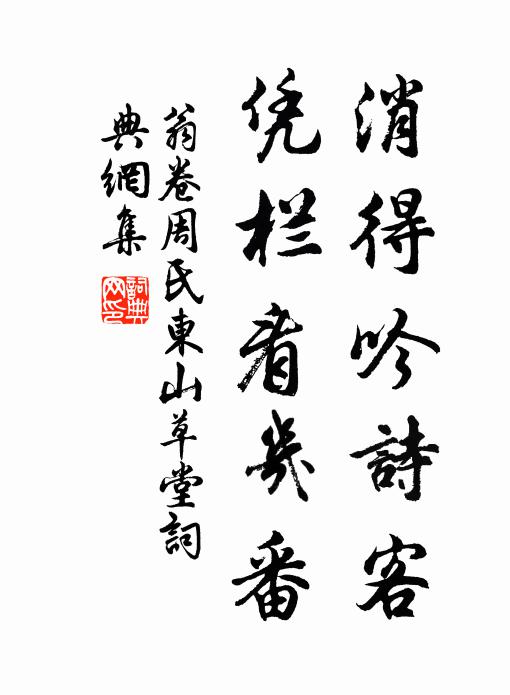 消得吟詩客
凭栏看幾番
翁卷周氏東山草堂詞
典網集
詞典网印